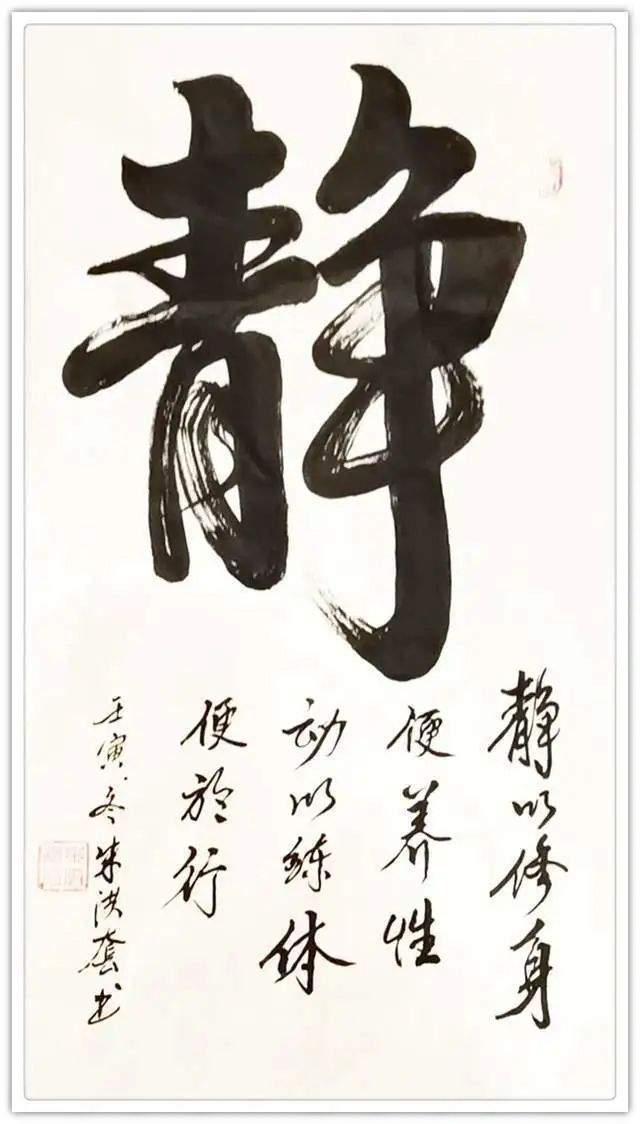 静
静以修身
便养性
动以练体
便於行
壬寅冬朱洪书